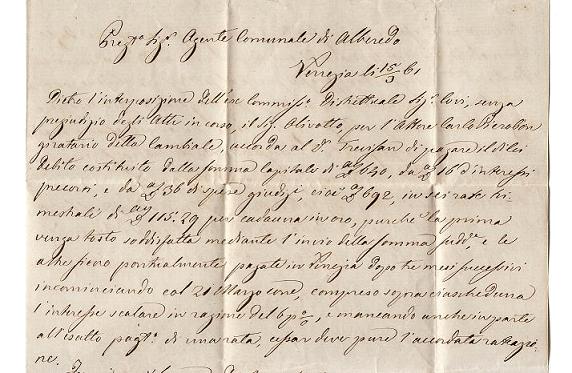 Pregto Sigr. Agente Comunale di Alberedo
Venezia li 15/3 61
Dietro l'interposizione dell' Commissº. Distrettuale Sigr. Covi, senza
pregiudizio degli Atti in corso, il Sigr. Olivotto, per l'Attore Carlo
giratario della Cambiale, accorda al Sr. Trevisan di pagare il di lei
debito costituito dalla somma Capitale di 640, da 16 d'interessi
precorsi, e da 36 di spese giudizi, cioè 692, in sei rate tri-
mestrali di 115:29 per cadauna in oro, purchè la prima
venga tosto soddisfatta mediante l'invio della somma sudda. e le
altre sieno pontualmente pagate in Venezia dopo tre mesi successivi
incominciando col 21 Marzo, compreso sopra ciascheduna
l'interesse scalare in ragione del 6 p%, e mancando anche in parte
all'esatto pagto. di una rata, cessar deve pure l'accordata
ne.